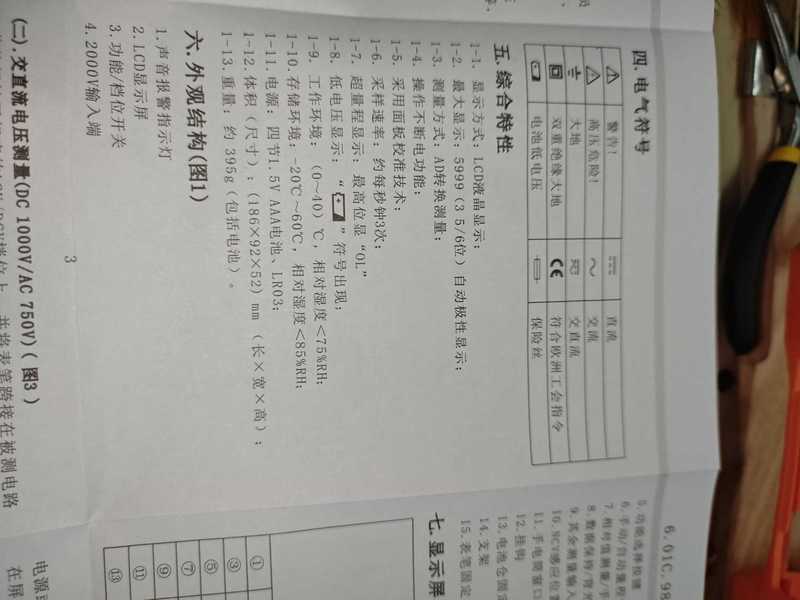 四.电气符号
警告! 直流
高压危险! 交流
大地 交直流
双重绝缘大地 CE 符合欧洲工会指令
电池低电压 保险丝
五.综合特性
1-1. 显示方式：LCD液晶显示；
1-2. 最大显示：5999（3 5/6位）自动极性显示；
1-3. 测量方式：AD转换测量；
1-4. 操作不断电功能；
1-5. 采用面板校准技术；
1-6. 采样速率：约每秒钟3次；
1-7. 超量程显示：最高位显“OL”
1-8. 低电压显示：“ ”符号出现；
1-9. 工作环境：（0～40）℃，相对湿度＜75%RH；
1-10. 存储环境：-20℃～60℃，相对湿度＜85%RH；
1-11. 电源：四节1.5V AAA电池、LR03；
1-12. 体积（尺寸）：（186×92×52）mm（长×宽×高）；
1-13. 重量：约 395g（包括电池）。
六.外观结构(图1)
1.声音报警指示灯
2.LCD显示屏
3.功能/档位开关
4.2000V输入端
3
(二)交直流电压测量(DC 1000V/AC 750V)(图3)
并将表笔跨接在被测电路
5.功能选择按键
6.手动/自动量程
7.相对值测量/
8.数据保持/背光
9.其余测量输入
10.NCV感应位置
11.手电筒窗口
12.挂钩
13.电池仓固定
14.支架
15.表笔固定
七.显示屏
①
③
⑤
⑦
⑨
⑪
⑬
在屏